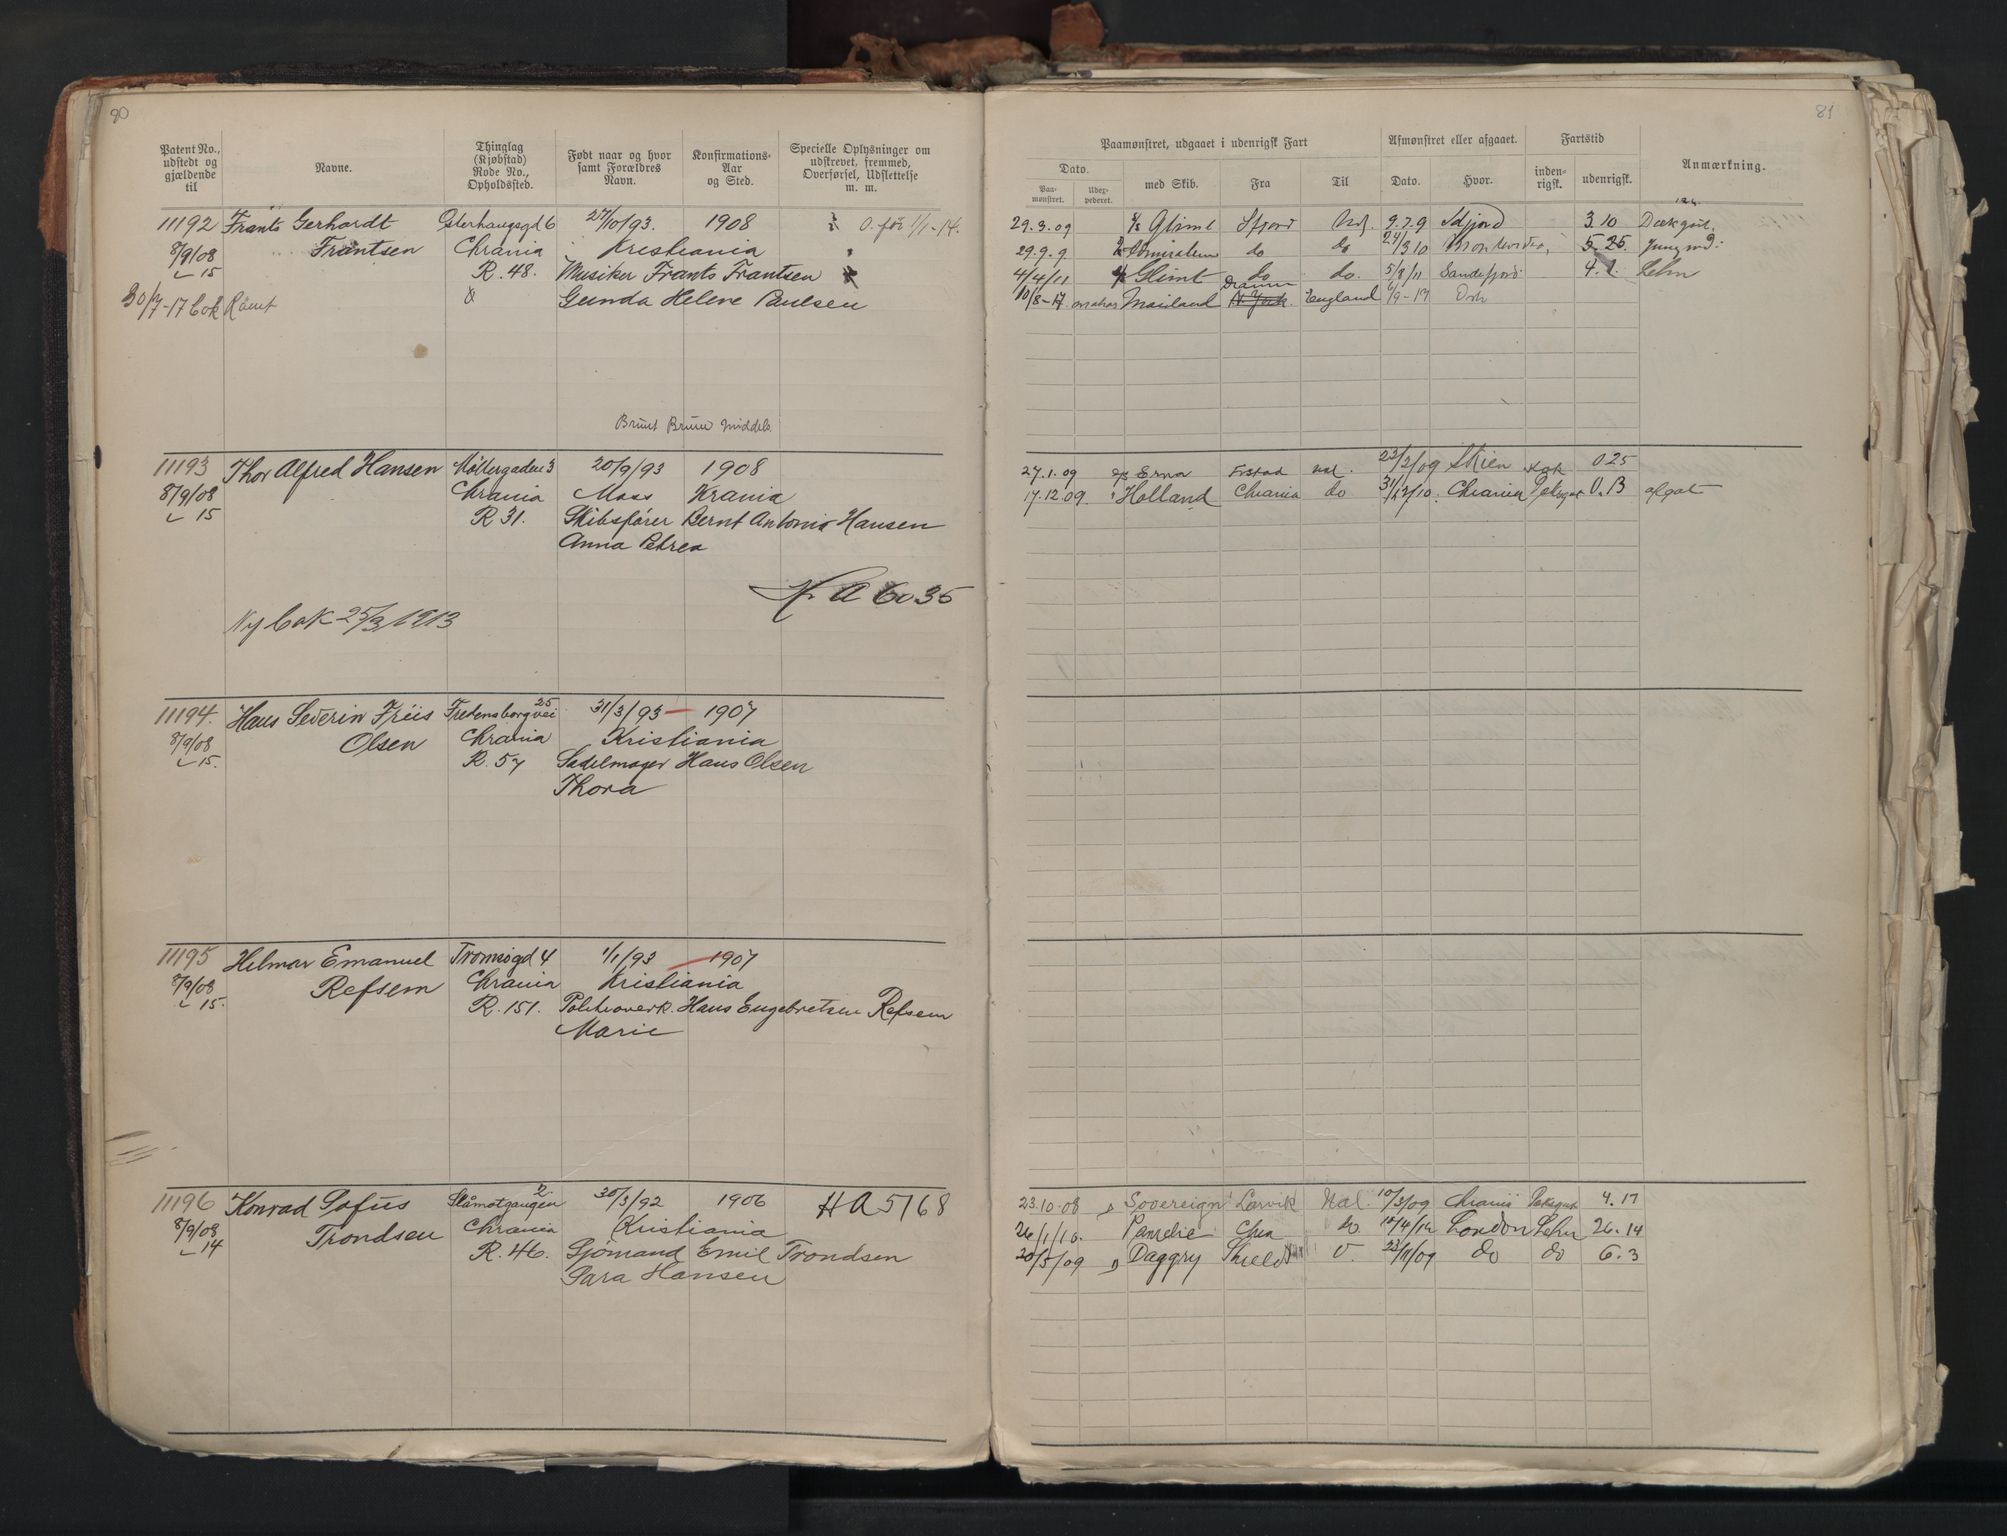 80
Patent No., udstedt og gjældende til
Navne.
Thinglag (Kjøbstad) Rode No., Opholdssted.
Født naar og hvor samt Forældres Navn.
Konfirmations-Aar og Sted.
Specielle Oplysninger om udskrevet, fremmed, Overførsel, Udslettelse m. m.
11192 Frants Gerhardt Osterhausgd 6 27/10/93. 1908 0. før 1/1-14.
8/9/08 Frantsen Chrania Kristiania
15 R. 48. Musiker Frants Frantsen
30/7-17 bok Rømt Gunda Helene Paulsen
Brunt Brune middels
11193 Thor Alfred Hansen Møllergaden 3 20/9/93 1908
8/9/08 Chrania Moss Krania
15 R 31. Skibsfører Bernt Antonio Hansen
Anna Petrea
A 6035
Ny bok 25/3/1913
11194. Hans Severin Friis Fredensborgvei 25 31/3/93 — 1907
8/9/08 Olsen Chrania Kristiania
15. R. 57 Sadelmager Hans Olsen
Thora
11195 Helmar Emanuel Tromsøgd 4 1/1/93 — 1907
8/9/08 Refsem Chrania Kristiania
15. R. 151. Politioverk. Hans Engebretsen Refsem
Marie
11196 Konrad Sofus Slåmotgangen 2 30/3/92 1906 HA 5168
8/9/08 Trondsen Chrania Kristiania
14 R. 46. Sjømand Emil Trondsen
Sara Hansen
81
Paamønstret, udgaaet i udenrigsk Fart
Afmønstret eller afgaaet.
Fartstid
Anmærkning.
Dato.
Paa-mønstret.
Udex-pederet.
med Skib.
Fra
Til
Dato.
Hvor.
inden-rigsk.
udenrigsk.
29.3.09 Glimt Sfjord 9.7.9 Sdfjord 3.10 Dækgut.
29.9.9 do do 24/3/10 5.25. Jungmd.
4/4/11 Glimt do do. 5/8/11 Sandefjord 4.1. Lehn
10/8-17 Mailand Drammen N. York England /9-17
27.1.09 Erna Frstad 23/2/09 Skien Kok 0 25
17.12.09 Holland Chrania do 31/12/10. Chrania 0.13 afgåt
23.10.08 Sovereign Larvik Hal. 10/3/09 Chrania Dæksgut 4.17
26/1/10. Chra do 10/4/12 London Lehn 26.14
20/5/09 Daggry Shields 23/11/09 do do 6.3